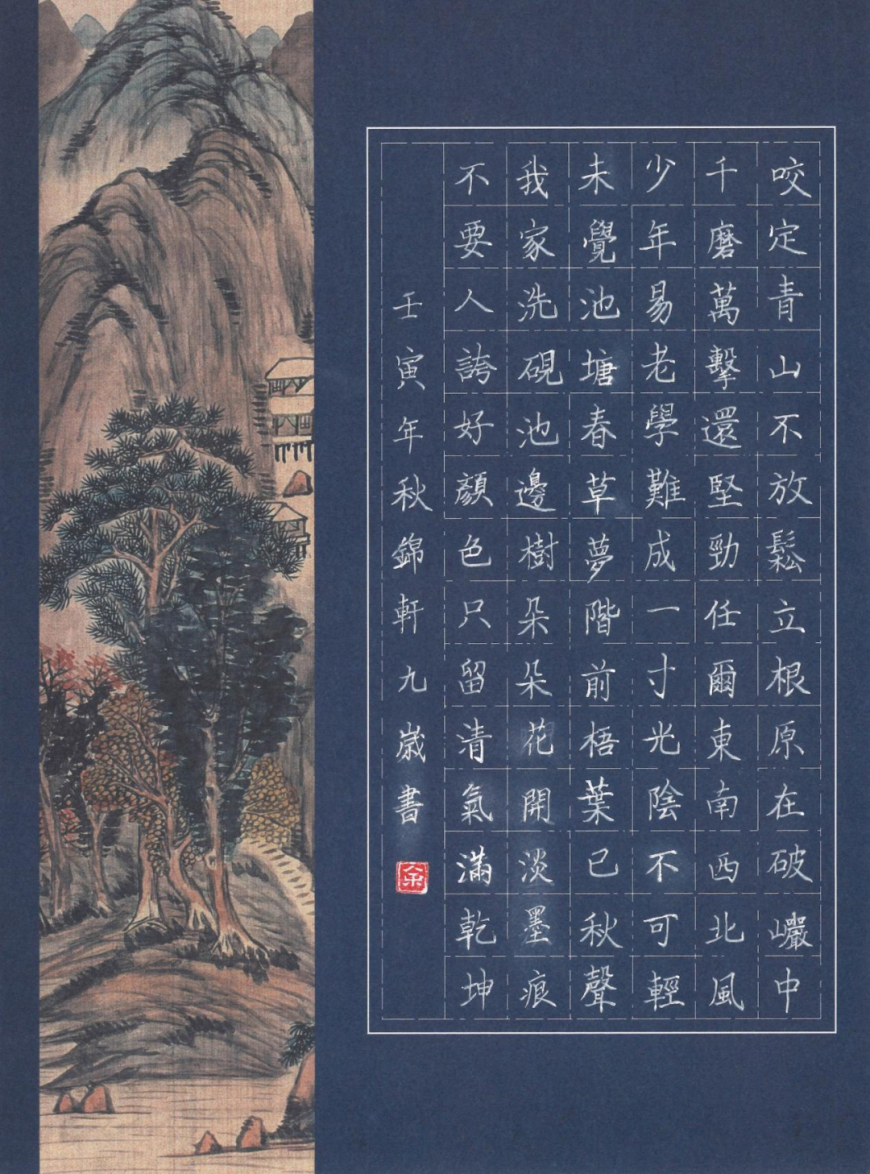 咬定青山不放鬆立根原在破巖中
千磨萬擊還堅勁任爾東南西北風
少年易老學難成一寸光陰不可輕
未覺池塘春草夢階前梧葉已秋聲
我家洗硯池邊樹朵朵花開淡墨痕
不要人誇好顏色只留清氣滿乾坤
壬寅年秋錦軒九歲書